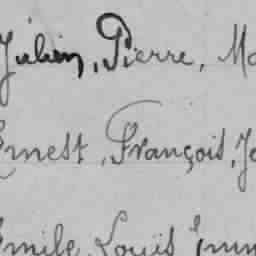 Julien, Pierre, Ma
Ernest, François, Je
Emile, Louis